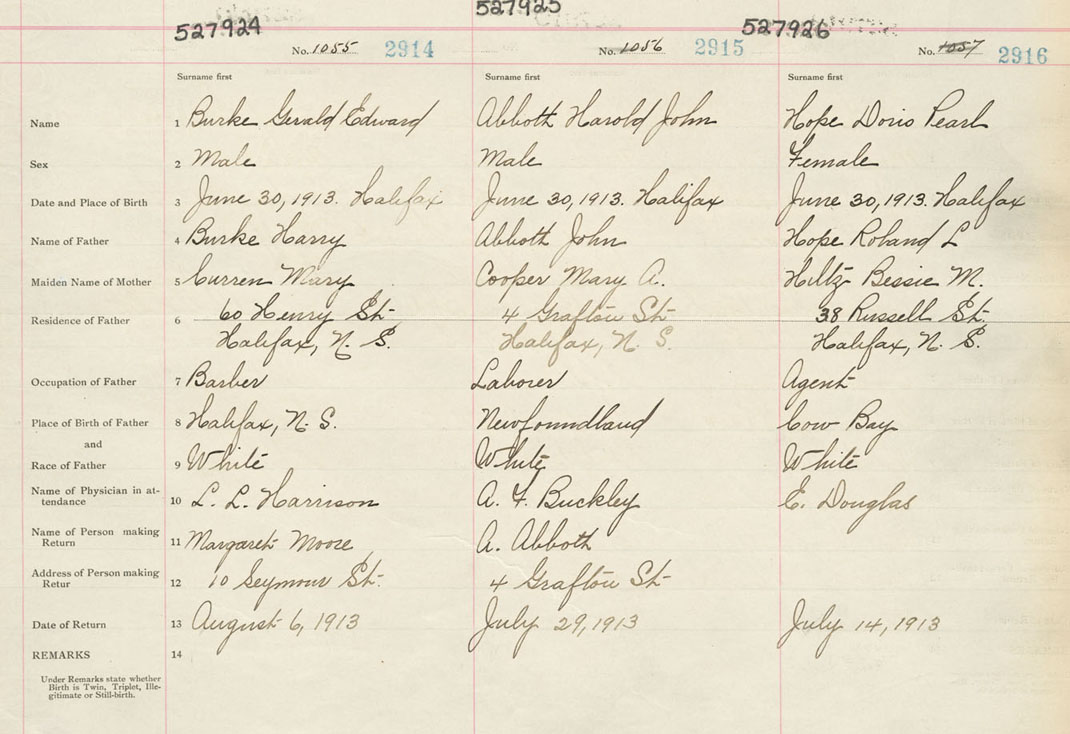 527924 527925 527926
No. 1055 2914 No. 1056 2915 No. 1057 2916
Surname first Surname first Surname first
Name 1 Burke Gerald Edward Abbott Harold John Hope Doris Pearl
Sex 2 Male Male Female
Date and Place of Birth 3 June 30, 1913. Halifax June 30, 1913. Halifax June 30, 1913. Halifax
Name of Father 4 Burke Harry Abbott John Hope Roland L
Maiden Name of Mother 5 Curren Mary Cooper Mary A. Hiltz Bessie M.
Residence of Father 6 60 Henry St. 4 Grafton St. 38 Russell St.
Halifax, N. S. Halifax, N. S. Halifax, N. S.
Occupation of Father 7 Barber Laborer Agent
Place of Birth of Father 8 Halifax, N. S. Newfoundland Cow Bay
and
Race of Father 9 White White White
Name of Physician in at-
tendance 10 L. L. Harrison A. F. Buckley E. Douglas
Name of Person making
Return 11 Margaret Moore A. Abbott
Address of Person making
Retur 12 10 Seymour St. 4 Grafton St
Date of Return 13 August 6, 1913 July 29, 1913 July 14, 1913
REMARKS 14
Under Remarks state whether
Birth is Twin, Triplet, Ille-
gitimate or Still-birth.